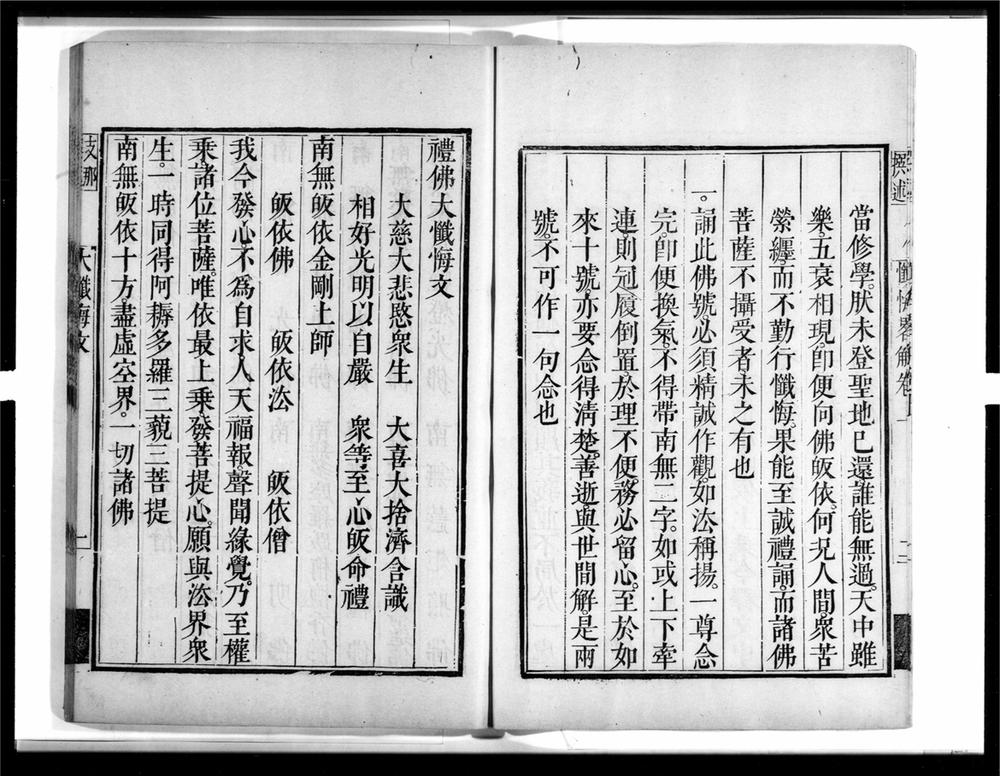 撰述 懺悔略解卷 二
當修學。肰未登聖地已還。誰能無過。天中雖
樂。五衰相現。卽便向佛皈依。何況人間。衆苦
縈纏。而不勤行懺悔。果能至誠禮誦。而諸佛
菩薩不攝受者未之有也
一。誦此佛號。必須精誠作觀。如法稱揚。一尊念
完。卽便換氣。不得帶南無二字。如或上下牽
連。則冠履倒置。於理不便。務必畱心。至於如
來十號。亦要念得清楚。善逝與世間解。是兩
號。不可作一句念也
禮佛大懺悔文
大慈大悲愍衆生 大喜大捨濟含識
相好光明以自嚴 衆等至心皈命禮
南無皈依金剛上師
皈依佛 皈依法 皈依僧
我今發心。不爲自求人天福報。聲聞緣覺。乃至權
乘諸位菩薩。唯依最上乘。發菩提心。願與法界衆
生。一時同得阿耨多羅三藐三菩提
南無皈依十方盡虛空界。一切諸佛
支那 大懺悔文 一